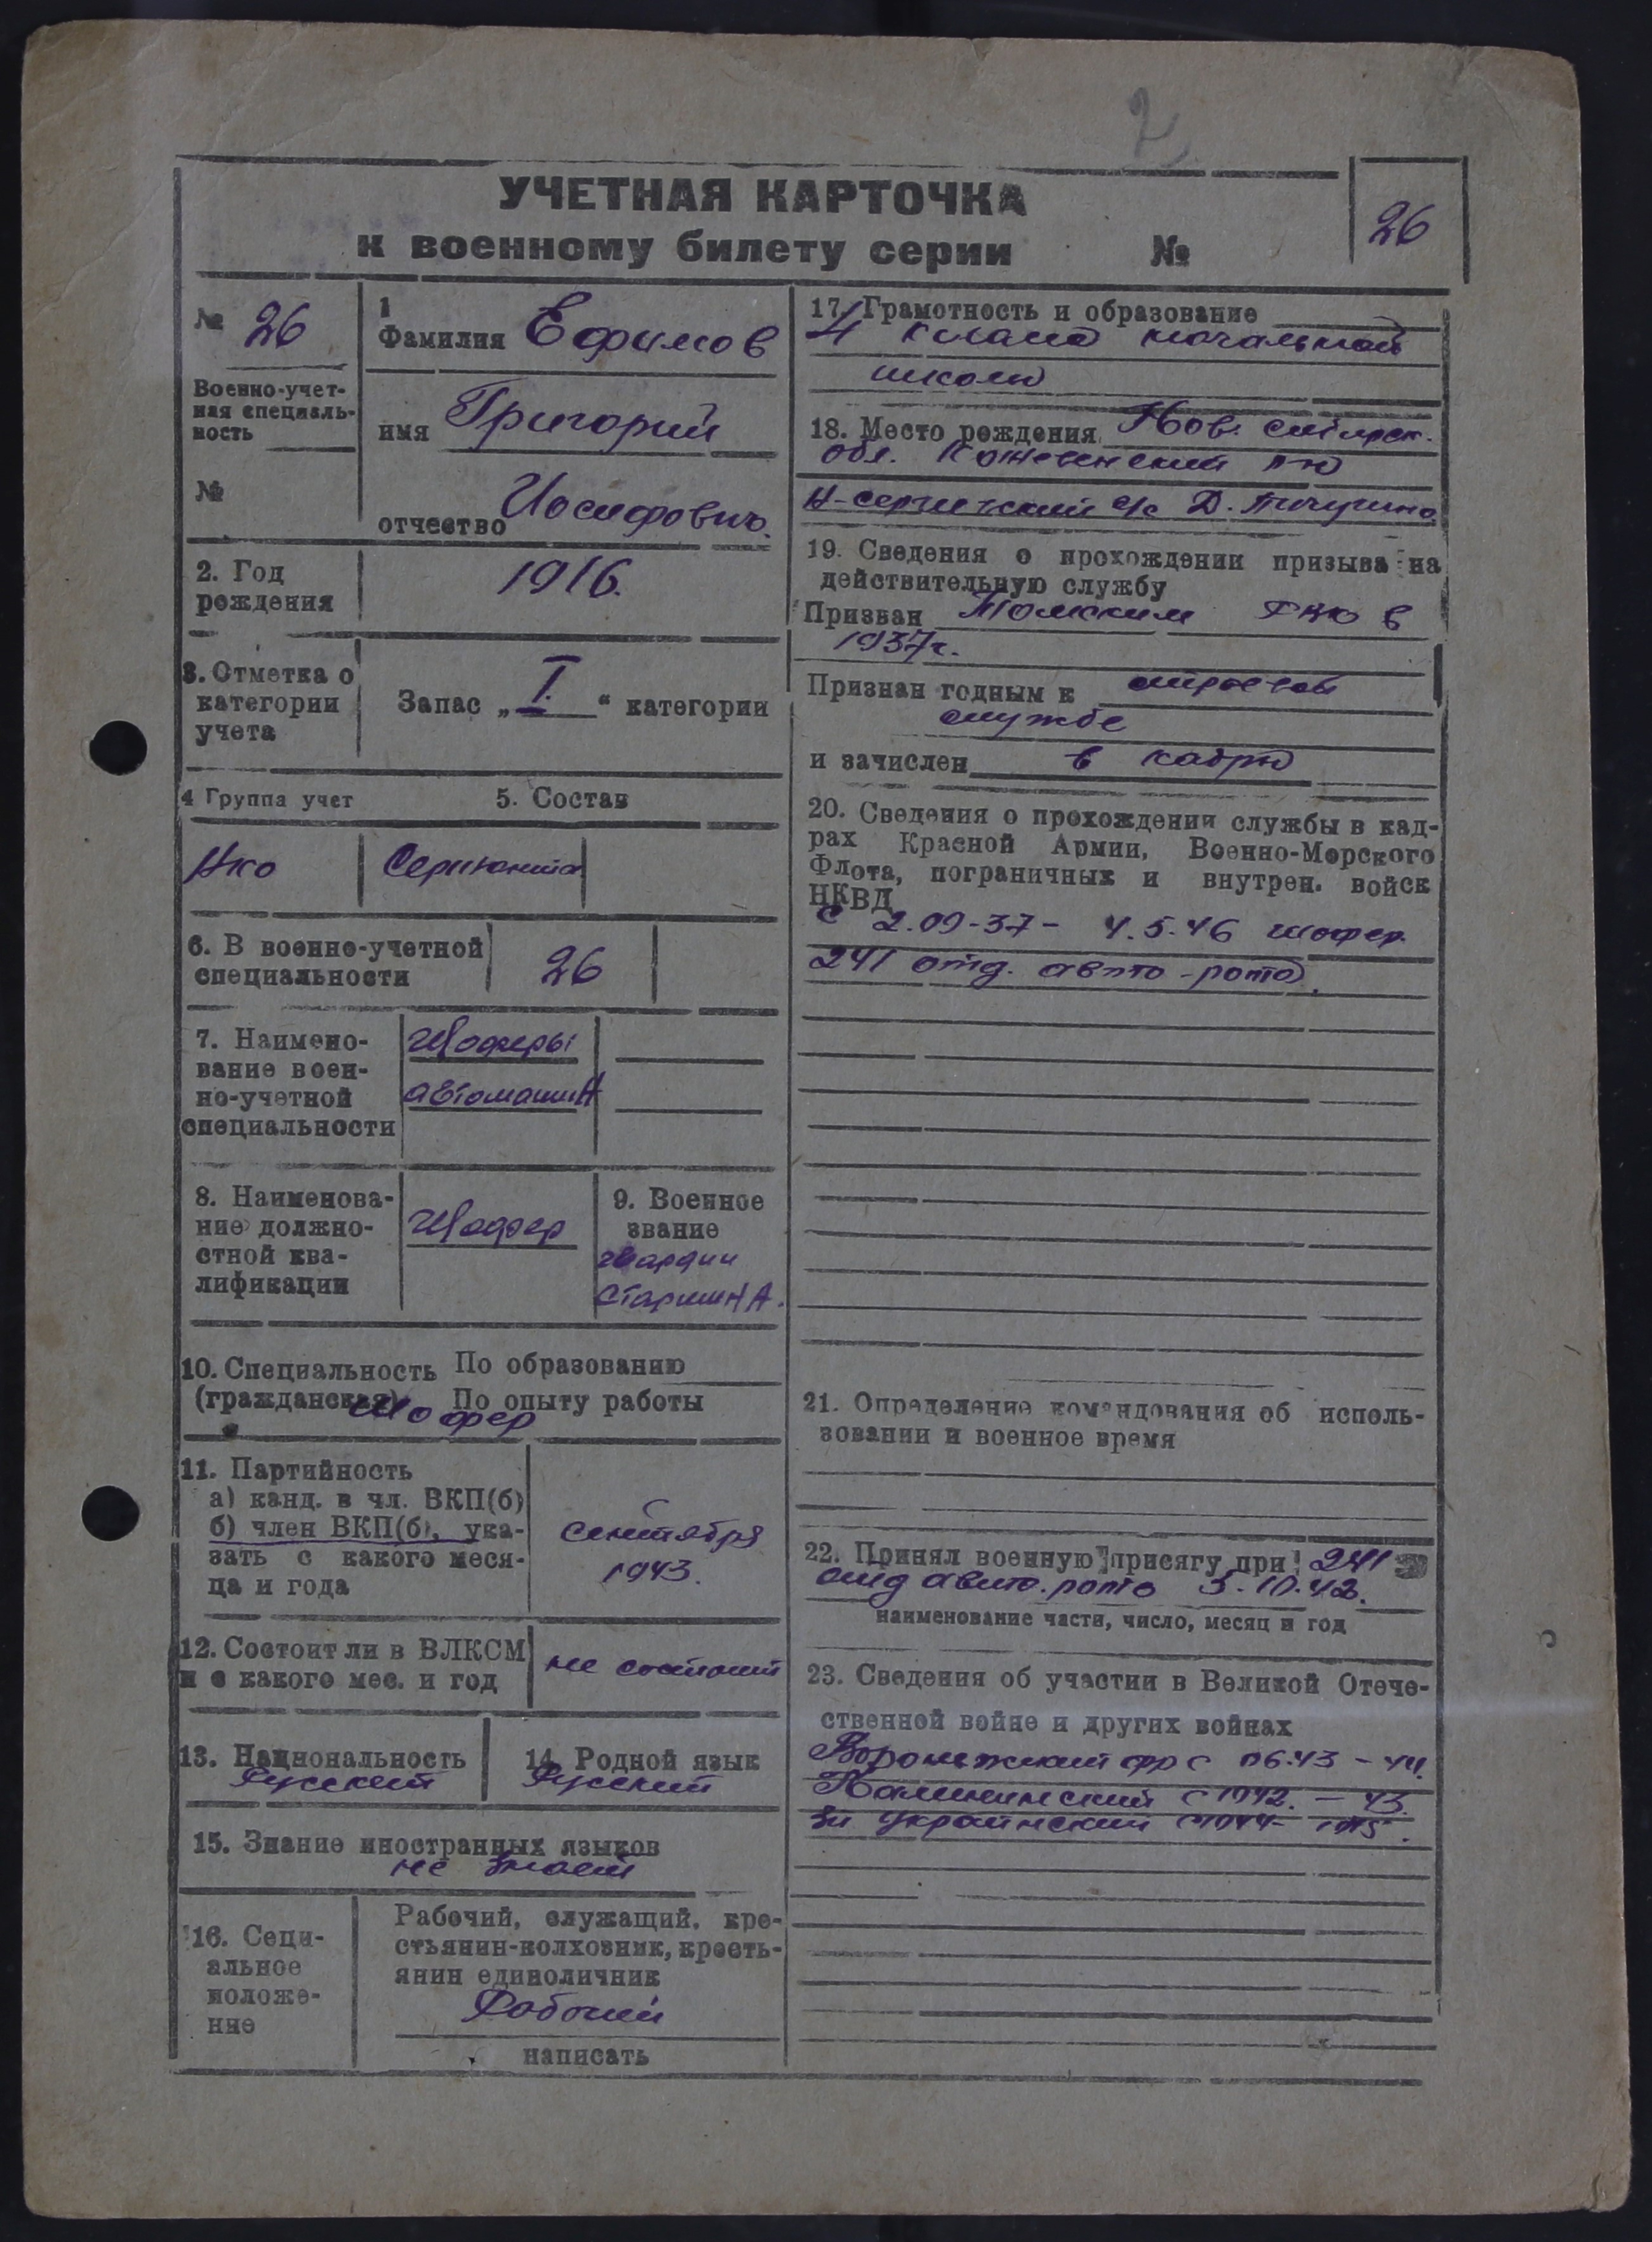 2
УЧЕТНАЯ КАРТОЧКА
к военному билету серии №
26
№ 26
Военно-учет-
ная специаль-
ность
№
1
Фамилия Ефимов
имя Григорий
отчество Иосифович.
2. Год
рождения
1916.
3. Отметка о
категории
учета
Запас „I." категории
4 Группа учет
5. Состав
Сержанта
6. В военно-учетной
специальности
26
7. Наимено-
вание воен-
но-учетной
специальности
Шоферы
автомашин
8. Наименова-
ние должно-
стной ква-
лификации
Шофер
9. Военное
звание
гвардии
старшина.
10. Специальность По образованию
(гражданская) По опыту работы
Шофер
11. Партийность
а) канд. в чл. ВКП(б)
б) член ВКП(б), ука-
зать с какого меся-
ца и года
сентября
1943.
12. Состоит ли в ВЛКСМ
и с какого мес. и год
не состоит
13. Национальность
Русский
14. Родной язык
Русский
15. Знание иностранных языков
не знает
16. Соци-
альное
положе-
ние
Рабочий, служащий, кре-
стьянин-колхозник, кресть-
янин единоличник
Рабочий
написать
17. Грамотность и образование
4 класса начальной
школы
18. Место рождения Нов. сибирск.
обл. Кожевенский р-н
с/с Д.
19. Сведения о прохождении призыва на
действительную службу
Призван Томским РВК в
1937г.
Признан годным к строевой
службе
и зачислен в кадры
20. Сведения о прохождении службы в кад-
рах Красной Армии, Военно-Морского
Флота, пограничных и внутрен. войск
НКВД
с 2.09-37- 4.5.46 шофер.
241 отд. авто-рота.
21. Определение командования об исполь-
зовании и военное время
22. Принял военную присягу при 241
отд авто. рота 5.10.42.
наименование части, число, месяц и год
23. Сведения об участии в Великой Отече-
ственной войне и других войнах
Воронежский фр с 06.43 - 44.
Калининский с 1942. - 43.
3й Украинский с 1944- 1945.